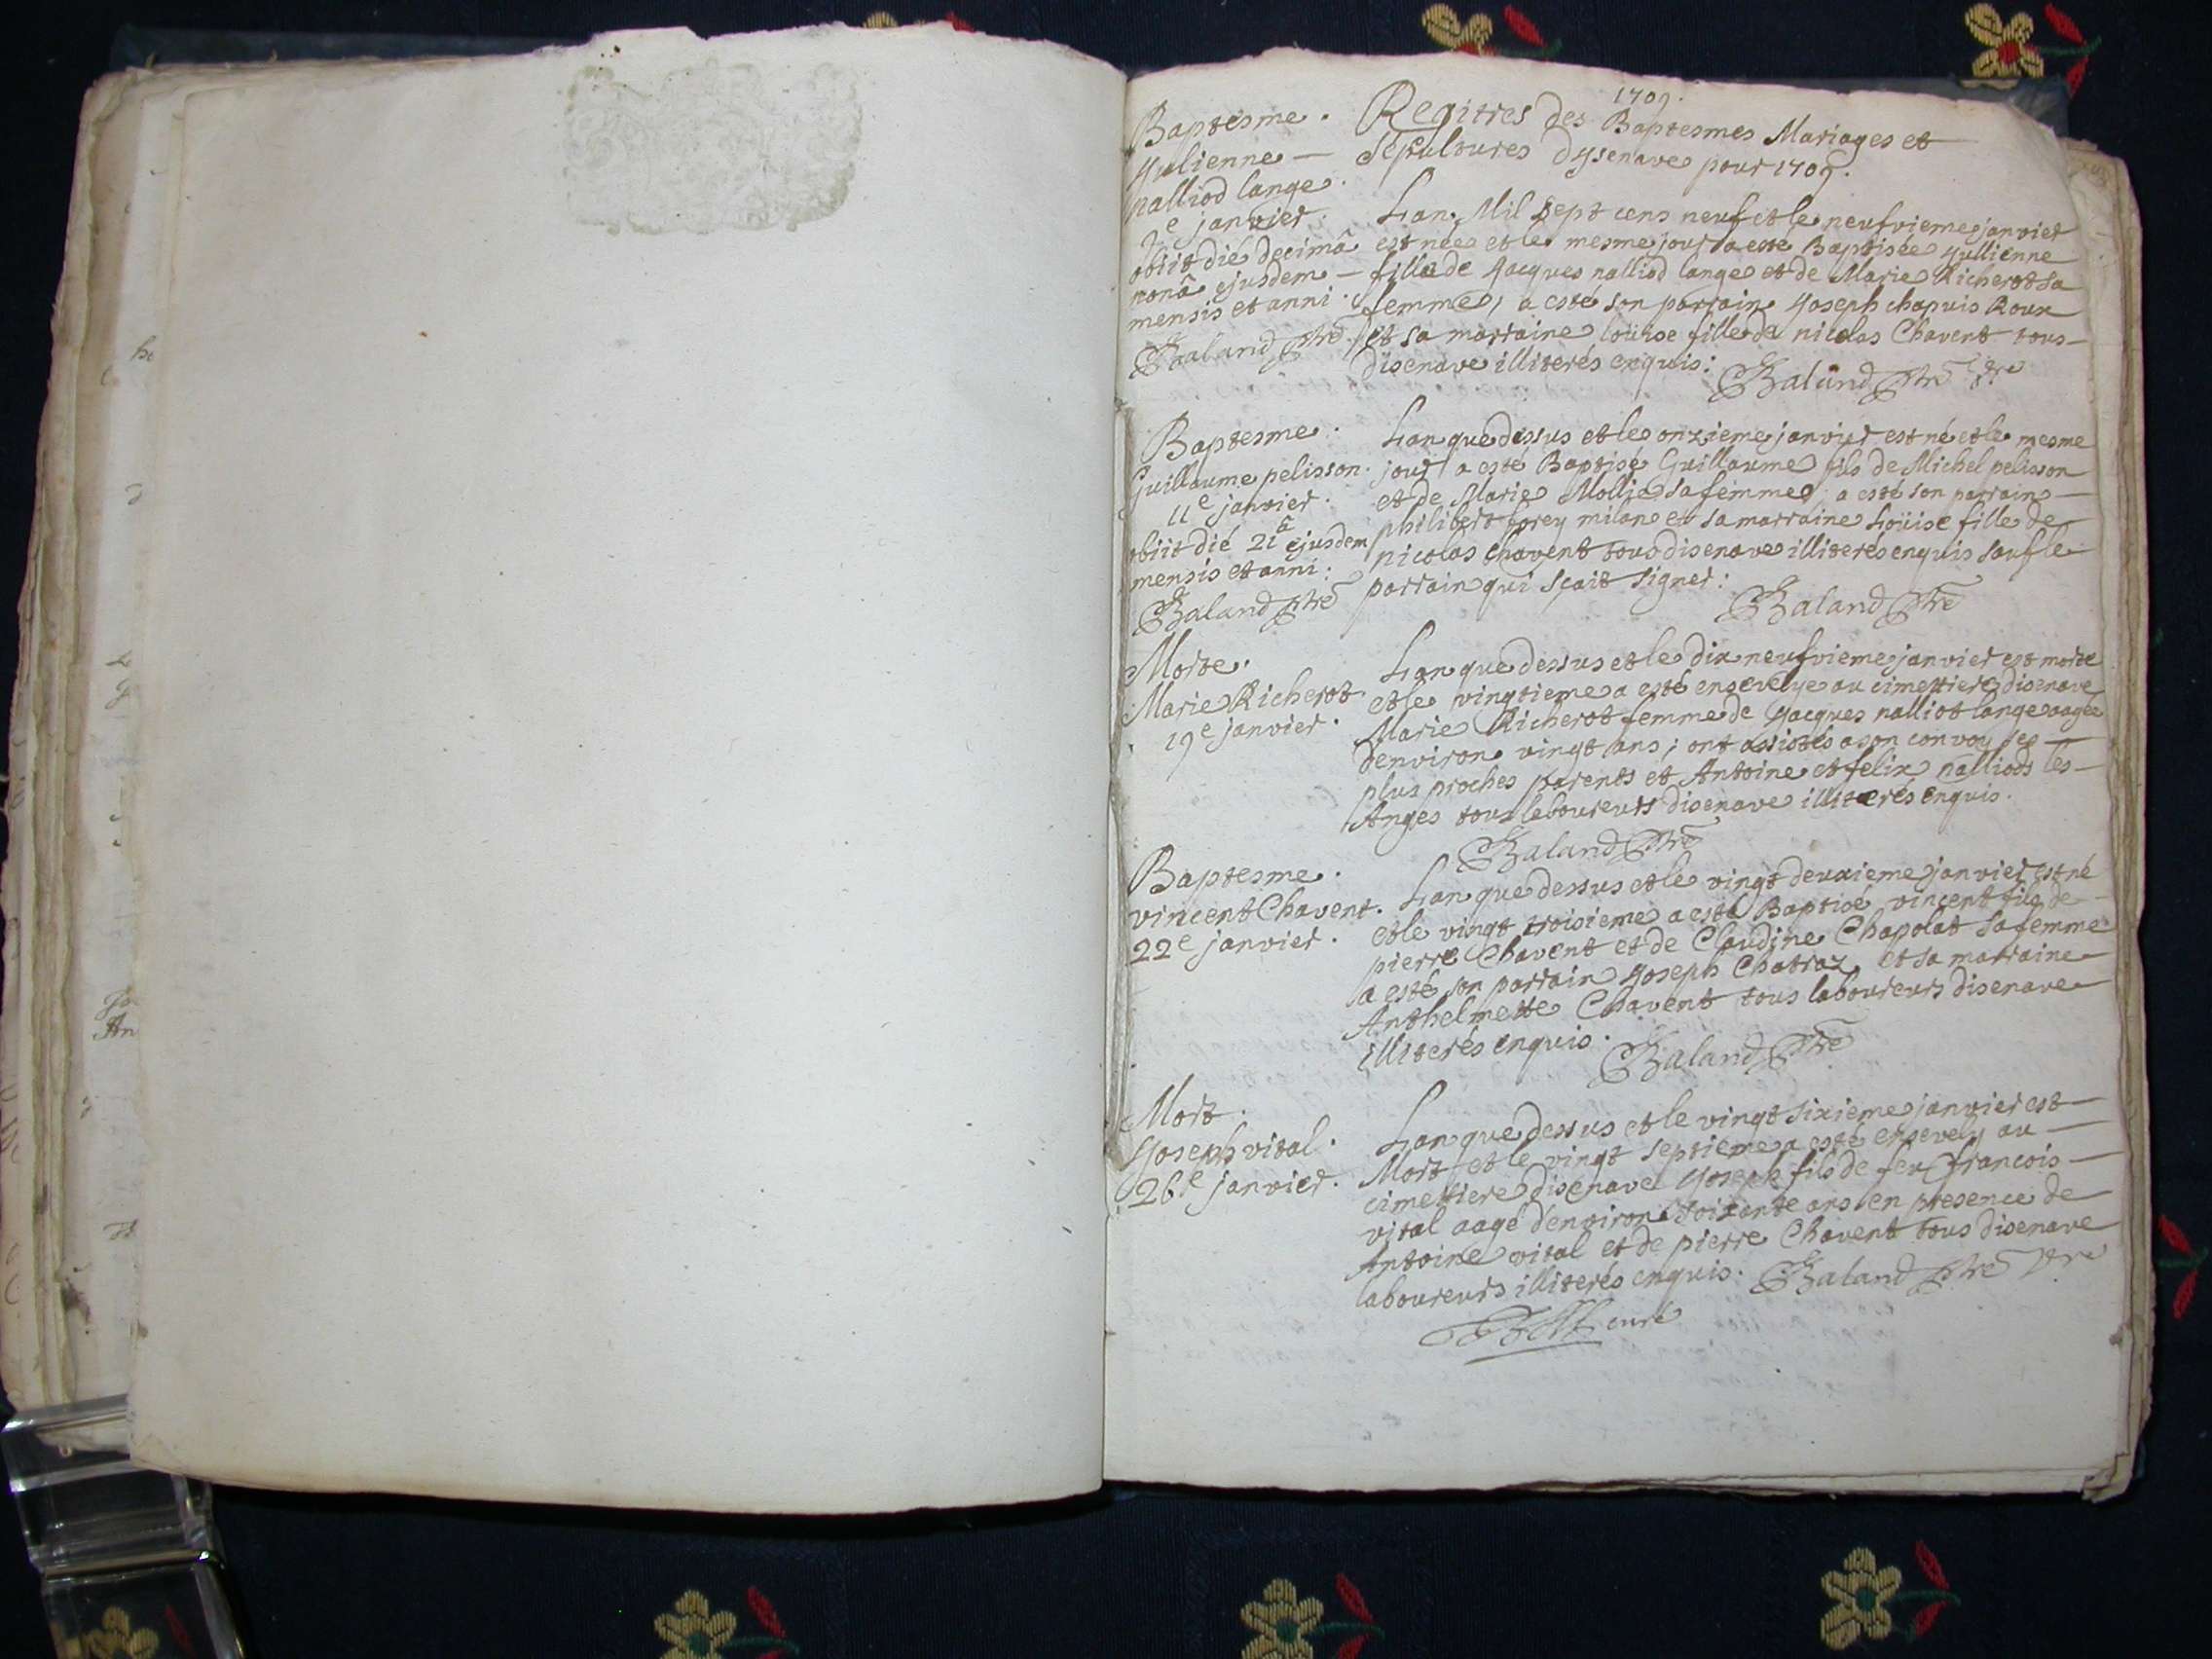 1709.
Regitres des Baptesmes Mariages et
Sepultures dysenave pour 1709.
Baptesme.
Yulienne —
nalliod lange.
9e janvier.
obiit dié decimâ
nonâ ejusdem —
mensis et anni.
Baland ptre
Lan Mil sept cens neuf et le neufvieme janvier
est née et le mesme jour a esté Baptisée Yullienne
fille de Yacques nalliod lange et de Marie Richerot sa
femme, a esté son parrain Yoseph chapuis Roux
et sa marraine loüise fille de nicolas Chavent tous —
disenave illiterés enquis:
Baland ptre
Baptesme.
Guillaume pelisson.
11e janvier.
obiit dié 21â ejusdem
mensis et anni:
Baland ptre
Lan que dessus et le onzieme janvier est né et le mesme
jour a esté Baptisé Guillaume fils de Michel pelisson
et de Marie Mollie sa femme, a esté son parrain —
philibert forey milan et sa marraine Loüise fille de
nicolas Chavent tous disenave illiterés enquis sauf le
parrain qui sçait signer:
Baland ptre
Morte.
Marie Richerot
19e janvier.
Lan que dessus et le dix neufvieme janvier est morte
et le vingtieme a esté ensevelye au cimettiere disenave
Marie Richerot femme de Yacques nalliot lange aagée
denviron vingt ans; ont assistés a son convoy ses —
plus proches parents et Antoine et felix nalliods les —
Anges tous laboureurs disenave illiterés enquis.
Baland ptre
Baptesme.
vincent Chavent.
22e janvier.
Lan que dessus et le vingt deuxieme janvier est né
et le vingt troisieme a esté Baptisé vincent fils de —
pierre Chavent et de Claudine Chapolat sa femme
a esté son parrain Yoseph Chatraz et sa marraine
Anthelmette Chavent tous laboureurs disenave
illiterés enquis.
Baland ptre
Mort.
Yoseph vital.
26e janvier.
Lan que dessus et le vingt sixieme janvier est —
Mort et le vingt septieme a esté ensevely au —
cimettiere disenave Yoseph fils de feu francois —
vital aagé denviron soixante ans en presence de
Antoine vital et de pierre Chavent tous disenave
laboureurs illiterés enquis.
Baland ptre
curé